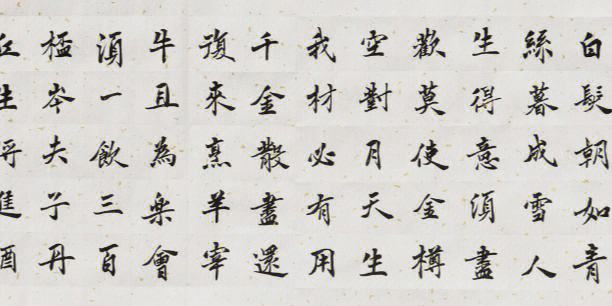 白髮朝如青
絲暮成雪人
生得意須盡
歡莫使金樽
空對月天生
我材必有用
千金散盡還
復來烹羊宰
牛且為樂會
須一飲三百
桮岑夫子丹
丘生將進酒